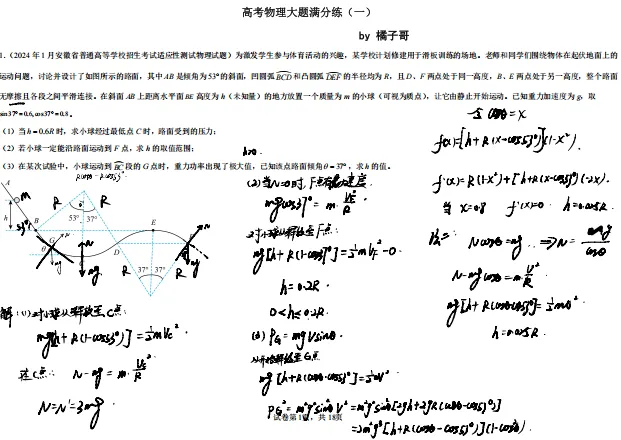 高考物理大题满分练（一）
by 橘子哥
1.（2024年1月安徽省普通高等学校招生考试适应性测试物理试题）为激发学生参与体育活动的兴趣，某学校计划修建用于滑板训练的场地。老师和同学们围绕物体在起伏地面上的
运动问题，讨论并设计了如图所示的路面，其中AB是倾角为53°的斜面，凹圆弧BCD和凸圆弧DEF的半径均为R，且D、F两点处于同一高度，B、E两点处于另一高度，整个路面
无摩擦且各段之间平滑连接。在斜面AB上距离水平面BE高度为h（未知量）的地方放置一个质量为m的小球（可视为质点），让它由静止开始运动。已知重力加速度为g，取
sin37°=0.6,cos37°=0.8。
（1）当h=0.6R时，求小球经过最低点C时，路面受到的压力；
（2）若小球一定能沿路面运动到F点，求h的取值范围；
（3）在某次试验中，小球运动到BC段的G点时，重力功率出现了极大值，已知该点路面倾角θ=37°，求h的值。
A
m
R
R
53° 37°
h
B
53°
G
θ
mg
N
mg
D
E
R
37° 37°
R
F
mg
解：(1)对小球从A释放至C点：
mg[h+R(1-cos53°)]=½mVc²
在C点：N-mg=m·Vc²/R
N=N'=3mg
h>0
mgcos37°=m·VF²/R
mg[h+R(1-cos53°)]=½mVF²-0
h=0.2R
0<h≤0.2R
(3) PG=mgVsinθ
mg[h+R(cosθ-cos53°)]=½mV²
PG²=m²g²sin²θV²=m²g²sin²θ[2gh+2gR(cosθ-cos53°)]
=2m²g³[h+R(cosθ-cos53°)](1-cos²θ)
试卷第1页，共18页
令 cosθ=x
f(x)=[h+R(x-cos53°)](1-x²)
f'(x)=R(1-x²)+[h+R(x-cos53°)](-2x)
当 x=0.8 f'(x)=0 h=0.025R
Ncosθ=mg ⇒N=mg/cosθ
N-mgcosθ=m·V²/R
mg[h+R(cosθ-cos53°)]=½mV²
h=0.025R